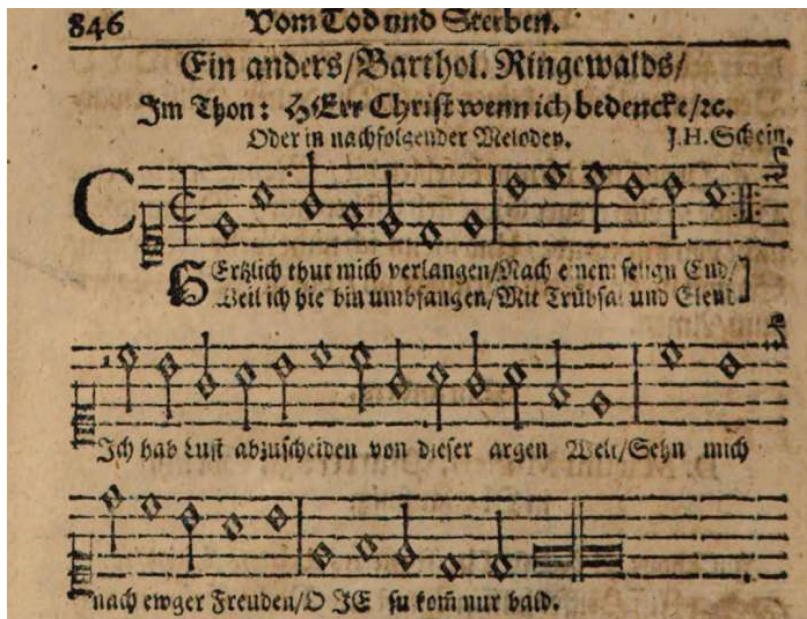 846 Vom Tod und Sterben.
Ein anders/Barthol. Ringewalds/
Im Thon: HErr Christ wenn ich bedencke/ꝛc.
Oder in nachfolgender Melodey. J.H.Schein.
HErtzlich thut mich verlangen/Nach einem selign End/
Weil ich hie bin umbfangen/Mit Trübsal und Elend.
Ich hab Lust abzuscheiden von dieser argen Welt/Sehn mich
nach ewger Freuden/O JEsu kom̃ nur bald.